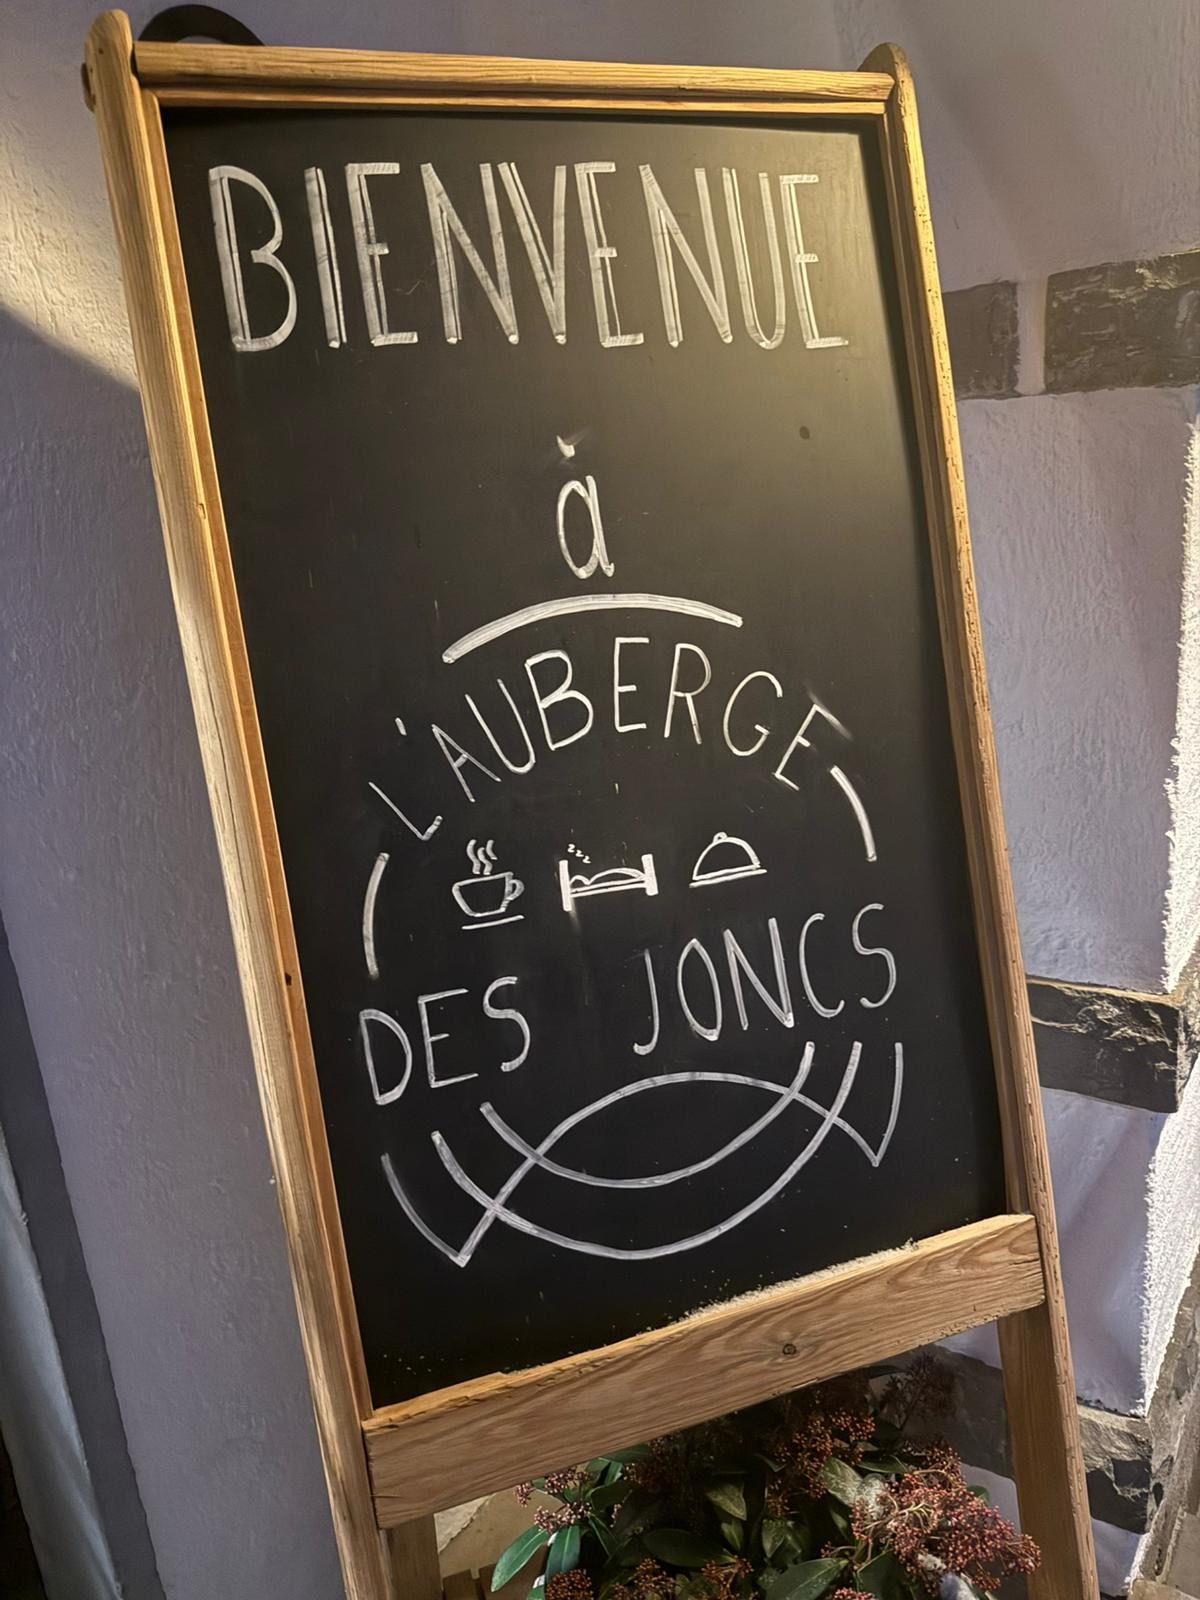 BIENVENUE
à
L'AUBERGE
zzz
DES JONCS